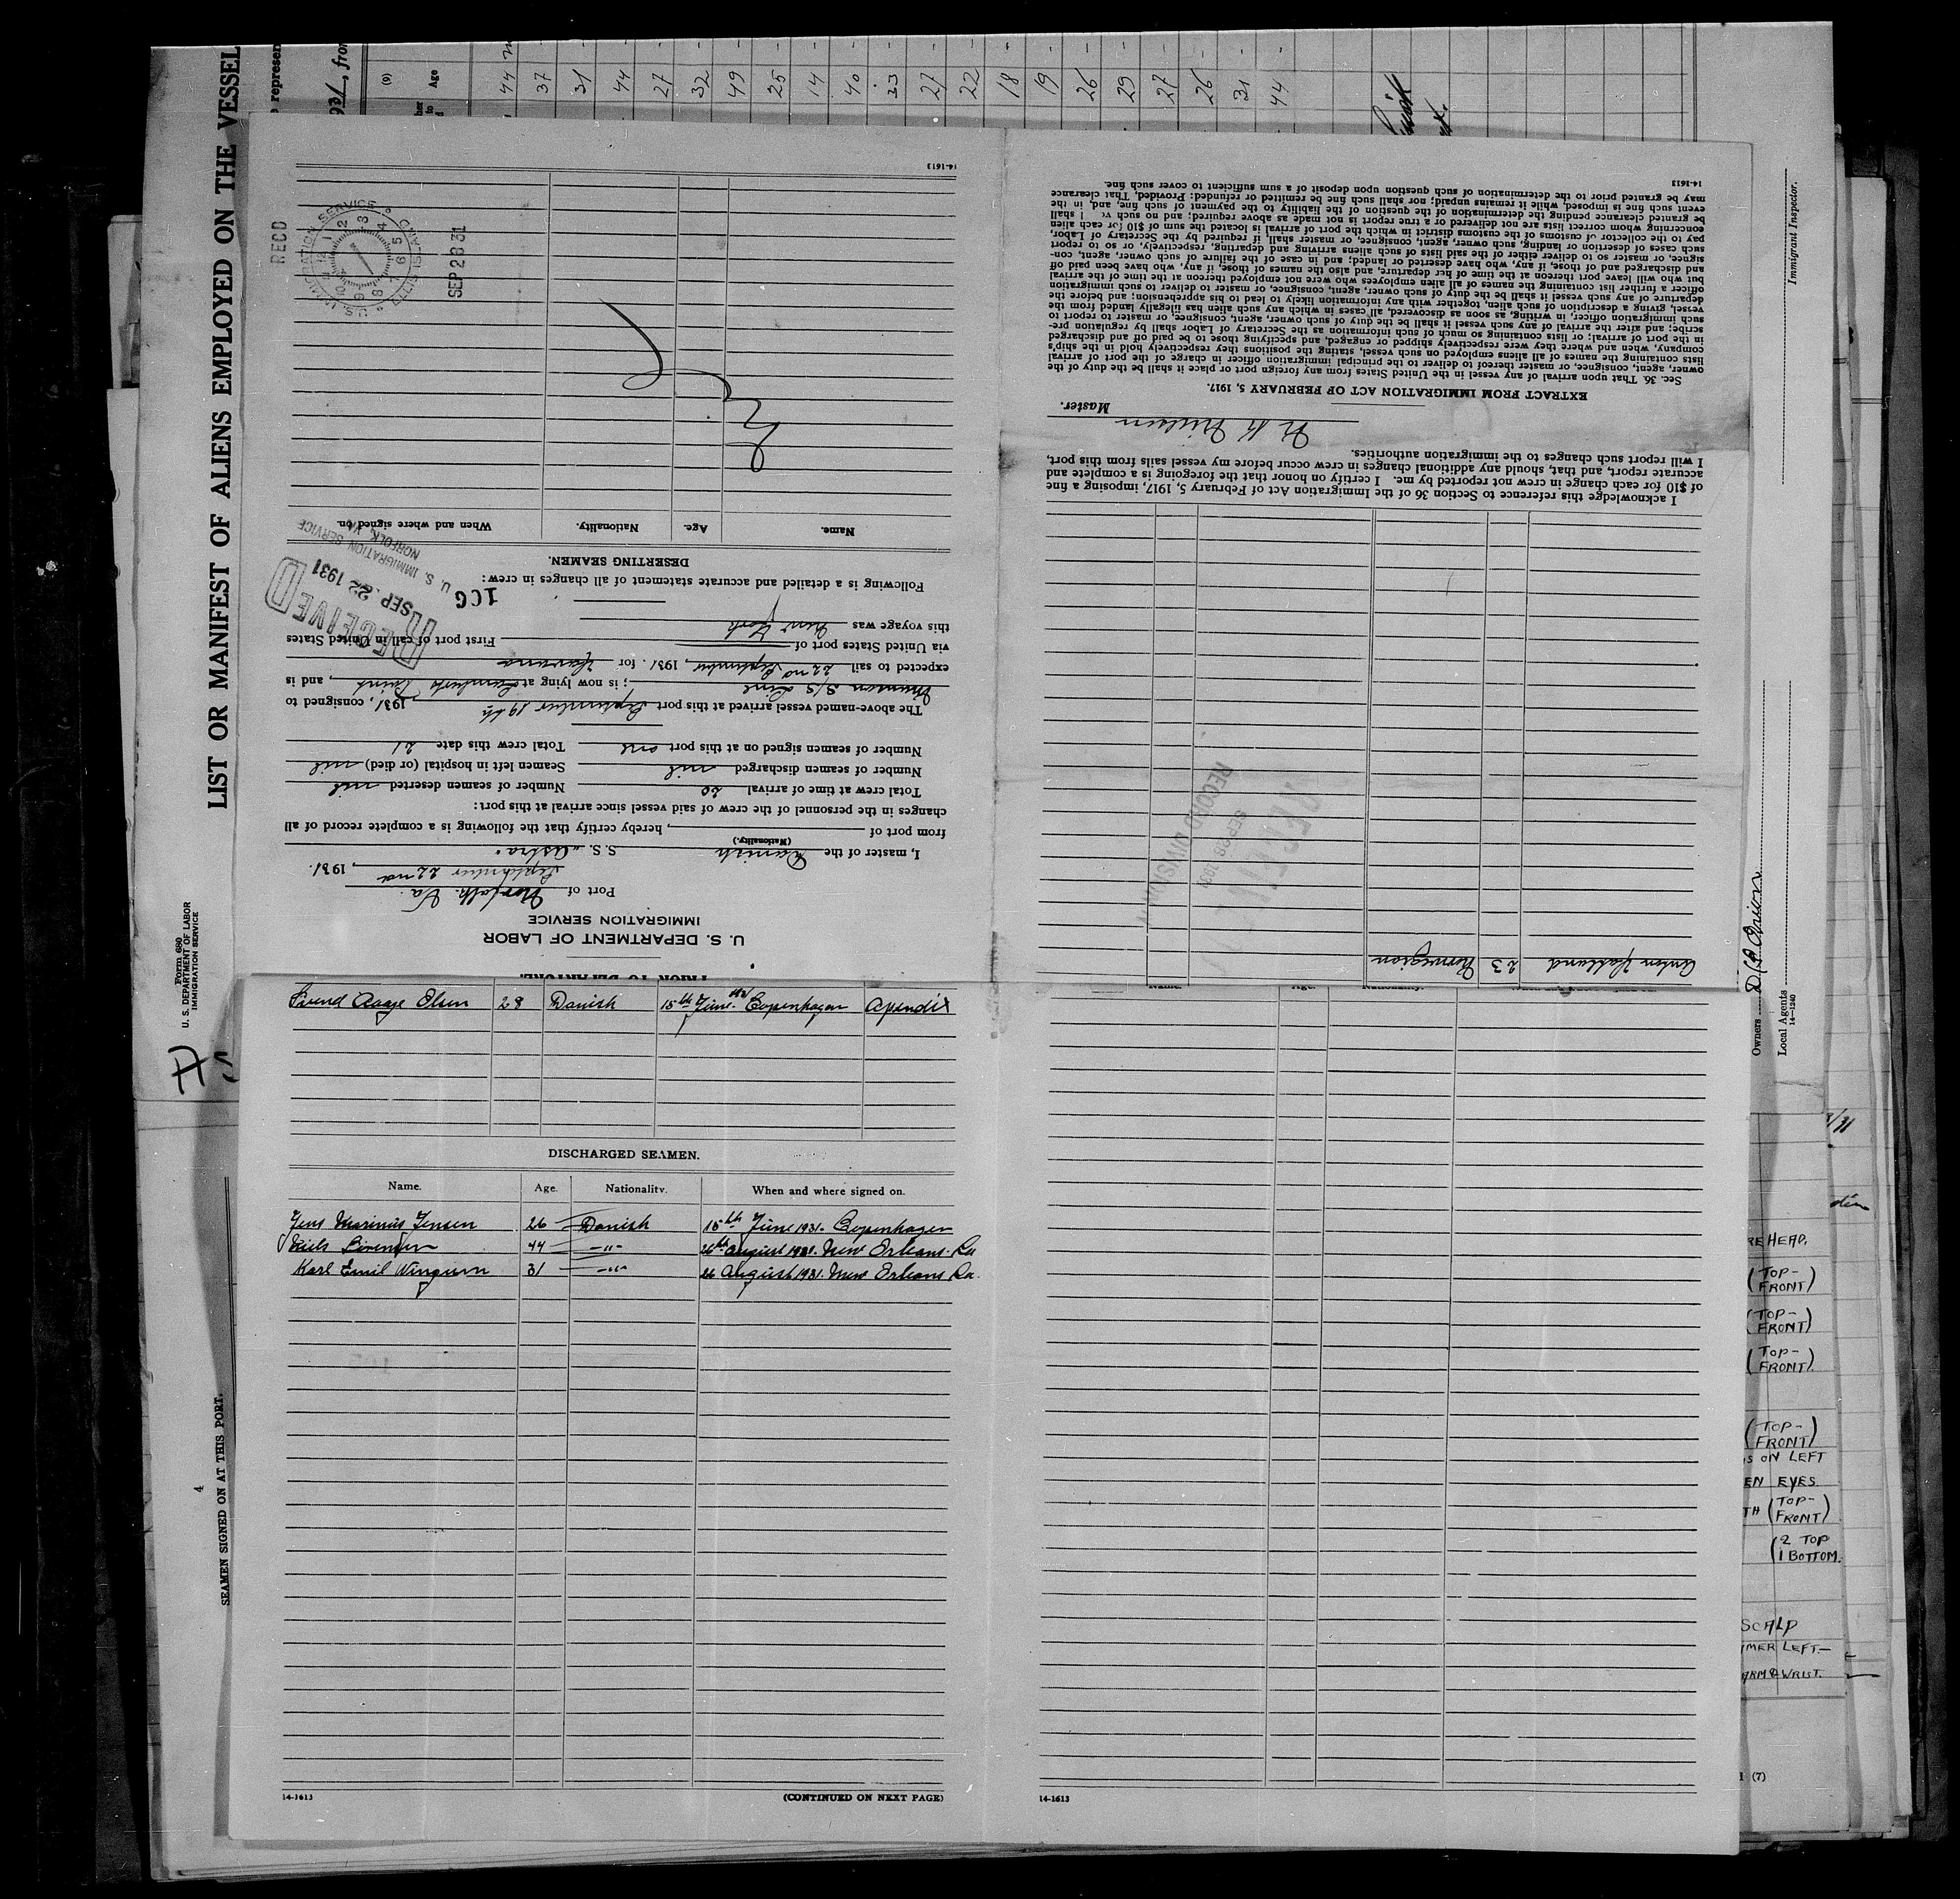 LIST OR MANIFEST OF ALIENS EMPLOYED ON THE VESSEL
Form 680
U. S. DEPARTMENT OF LABOR
IMMIGRATION SERVICE
4
SEAMEN SIGNED ON AT THIS PORT.
(9)
Age
44
37
31
44
27
32
49
25
14
40
33
27
22
18
19
26
29
27
26
31
44
U. S. DEPARTMENT OF LABOR
IMMIGRATION SERVICE
Port of Norfolk Va.
September 22nd, 1931.
I, master of the Danish S. S. "Astra"
(Nationality.)
from port of , hereby certify that the following is a complete record of all
changes in the personnel of the crew of said vessel since arrival at this port:
Total crew at time of arrival 20 Number of seamen deserted nil
Number of seamen discharged nil Seamen left in hospital (or died) nil
Number of seamen signed on at this port one Total crew this date 21
The above-named vessel arrived at this port September 19th, 1931, consigned to
Munson S/S Line; is now lying at Lamberts Point, and is
expected to sail 22nd September, 1931. for Havana
via United States port of First port of call in United States
this voyage was New York
Following is a detailed and accurate statement of all changes in crew:
106
RECEIVED
SEP. 22 1931
U. S. IMMIGRATION SERVICE
NORFOLK, VA.
DESERTING SEAMEN.
Name. Age. Nationality. When and where signed on.
RECD
SEP 28 31
U.S. IMMIGRATION SERVICE ELLIS ISLAND
14-1613
Anton Hatland 23 Norwegian
RECORD DIVISION
I acknowledge this reference to Section 36 of the Immigration Act of February 5, 1917, imposing a fine
of $10 for each change in crew not reported by me. I certify on honor that the foregoing is a complete and
accurate report, and that, should any additional changes in crew occur before my vessel sails from this port,
I will report such changes to the immigration authorities.
Master.
EXTRACT FROM IMMIGRATION ACT OF FEBRUARY 5, 1917.
Sec. 36. That upon arrival of any vessel in the United States from any foreign port or place it shall be the duty of the
owner, agent, consignee, or master thereof to deliver to the principal immigration officer in charge of the port of arrival
lists containing the names of all aliens employed on such vessel, stating the positions they respectively hold in the ship's
company, when and where they were respectively shipped or engaged, and specifying those to be paid off and discharged
in the port of arrival; or lists containing so much of such information as the Secretary of Labor shall by regulation pre-
scribe; and after the arrival of any such vessel it shall be the duty of such owner, agent, consignee, or master to report to
such immigration officer, in writing, as soon as discovered, all cases in which any such alien has illegally landed from the
vessel, giving a description of such alien, together with any information likely to lead to his apprehension; and before the
departure of any such vessel it shall be the duty of such owner, agent, consignee, or master to deliver to such immigration
officer a further list containing the names of all alien employees who were not employed thereon at the time of the arrival
but who will leave port thereon at the time of her departure, and also the names of those, if any, who have been paid off
and discharged and of those, if any, who have deserted or landed; and in case of the failure of such owner, agent, con-
signee, or master so to deliver either of the said lists of such aliens arriving and departing, respectively, or so to report
such cases of desertion or landing, such owner, agent, consignee, or master shall, if required by the Secretary of Labor,
pay to the collector of customs of the customs district in which the port of arrival is located the sum of $10 for each alien
concerning whom correct lists are not delivered or a true report is not made as above required; and no such shall
be granted clearance pending the determination of the question of the liability to the payment of such fine, and, in the
event such fine is imposed, while it remains unpaid; nor shall such fine be remitted or refunded: Provided, That clearance
may be granted prior to the determination of such question upon deposit of a sum sufficient to cover such fine.
14-1613
Svend Aage Olsen 28 Danish 15th June. 1931 Copenhagen Apendix
DISCHARGED SEAMEN.
Name. Age. Nationality. When and where signed on.
Jens Marinus Jensen 26 Danish 15th June 1931. Copenhagen
Niels Sörensen 44 -"- 26th August 1931. New Orleans. La
Karl Emil 31 -"- 26 August 1931. New Orleans La.
14-1613 (CONTINUED ON NEXT PAGE)
14-1613
Immigrant Inspector.
Owners
Local Agents
14-1240
REHEAD.
(TOP-
FRONT)
(TOP-
FRONT)
(TOP-
FRONT).
(TOP-
FRONT)
S ON LEFT
EN EYES
TH (TOP-
FRONT)
(2 TOP
1 BOTTOM.
SCALP
MER LEFT-
ARM & WRIST.
(7)